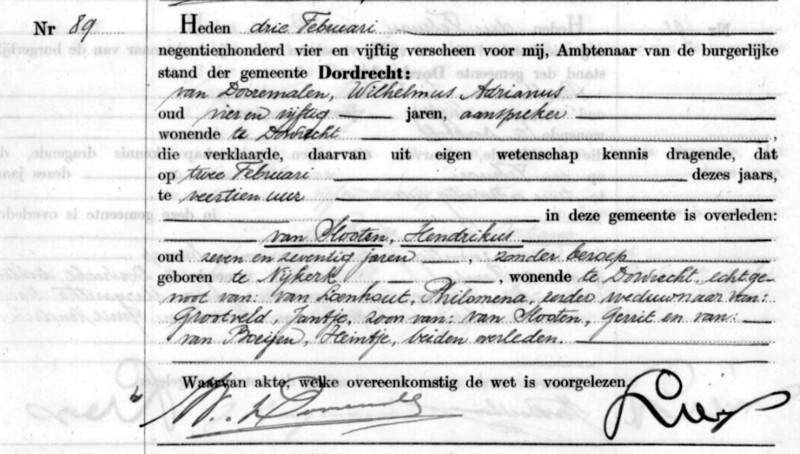 Nr 89
Heden drie Februari
negentienhonderd vier en vijftig verscheen voor mij, Ambtenaar van de burgerlijke
stand der gemeente Dordrecht:
van Dooremalen, Wilhelmus Adrianus
oud vier en vijftig jaren, aanspreker
wonende te Dordrecht,
die verklaarde, daarvan uit eigen wetenschap kennis dragende, dat
op twee Februari dezes jaars,
te veertien uur
in deze gemeente is overleden:
van Slooten, Hendrikus
oud zeven en zeventig jaren, zonder beroep
geboren te Nijkerk, wonende te Dordrecht, echtge-
noot van: van Loenhout, Philomena, eerder weduwnaar van:
Grootveld, Jantje, zoon van: van Slooten, Gerrit en van:
van Boeijen, Heintje, beiden overleden.
Waarvan akte, welke overeenkomstig de wet is voorgelezen.